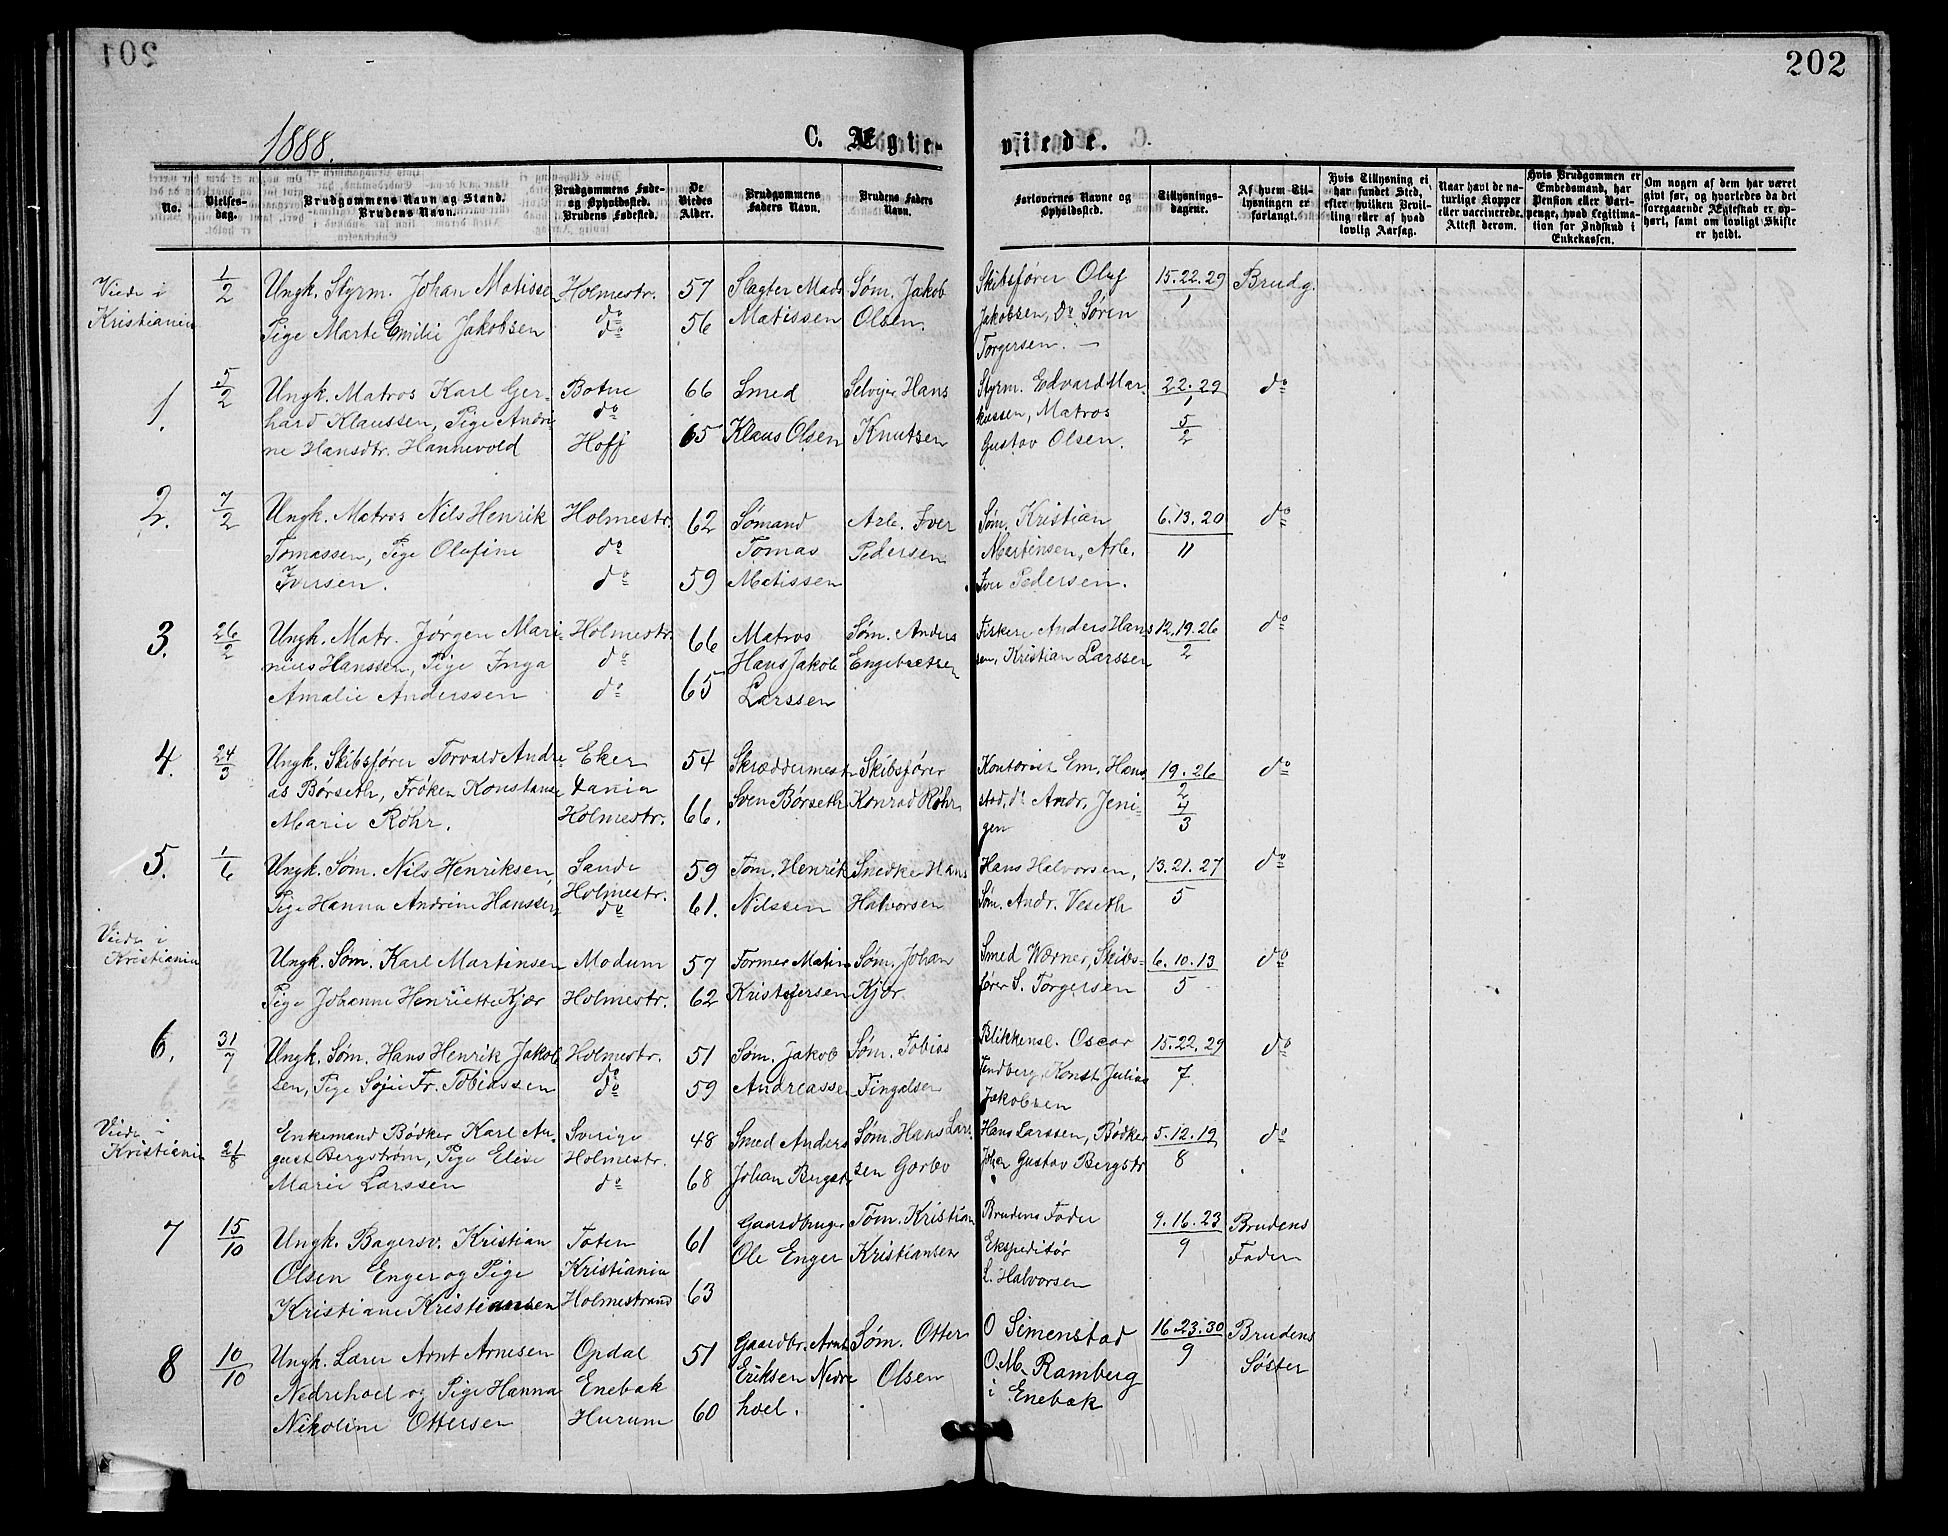 202
1888.
C. Ægteviede.
No.
Vielsesdag.
Brudgommens Navn og Stand.
Brudens Navn.
Brudgommens Føde- og Opholdsted.
Brudens Fødested.
De Viedes Alder.
Brudgommens Faders Navn.
Brudens Faders Navn.
Forlovernes Navne og Opholdsted.
Tillysningsdagene.
Af hvem Tillysningen er forlangt.
Hvis Tillysning ei har fundet Sted, efter hvilken Bevilling eller af hvad lovlig Aarsag.
Naar havt de naturlige Kopper eller vaccinerede. Attest derom.
Hvis Brudgommen er Embedsmand, har Pension eller Vartpenge, hvad Legitimation for Indskud i Enkekassen.
Om nogen af dem har været givt før, og hvorledes da det foregaaende Ægteskab er ophørt, samt om lovligt Skifte er holdt.
Viede i Kristiania 1/2 Ungk. Styrm. Johan Matissen Holmestr. 57 Slagter Mads Søm. Jakob Skibsfører Oluf 15.22.29 Brudg.
do Jakobsen, Do Søren 1
Pige Marte Emilie Jakobsen do 56 Matissen Olsen. Torgersen. —
1. 5/2 Ungk. Matros Karl Ger- Botne 66 Smed Selvejer Hans Styrm. Edvard Mar- 22.29 do
hard Klaussen, Pige Andri- do kussen, Matros 1
ne Hansdtr. Hannevold Hofj 65 Klaus Olsen Knutsen Gustav Olsen. 5/2
2. 7/2 Ungk. Matros Nils Henrik Holmestr. 62 Sømand Arb. Iver Søm. Kristian 6.13.20 do
Tomassen, Pige Olufine do Tomas Pedersen Martinsen, Arb. 11
Iversen. do 59 Matissen Iver Pedersen.
3. 26/2 Ungk. Matr. Jørgen Mari- Holmestr. 66 Matros Søm. Anders Fisker Anders Hans 12.19.26 do
nius Hanssen, Pige Inga do Hans Jakob Engebretsen sen, Kristian Larssen 2
Amalie Anderssen do 65 Larssen
4. 24/3 Ungk. Skibsfører Torvald Andre Eker 54 Skræddermestr Skibsfører Kontorist Em. Hans 19.26 do
as Børseth, Frøken Konstanse 66. Sven Børseth Konrad Røhr stad, do Andr. Jeni- 2
Marie Røhr. Holmestr. gen 4/3
5. 1/6 Ungk. Søm. Nils Henriksen, Sande 59 Tøm. Henrik Snedker Hans Hans Halvorsen, 13.21.27 do
Holmestr.
Pige Hanna Andrine Hanssen do 61. Nilssen Halvorsen Søm. Andr. Veseth 5
Viede i Kristiania
Ungk. Søm. Karl Martinsen Modum 57 Former Matin Søm. Johan Smed Wærner, Skibs- 6.10.13 do
Pige Johanne Henriette Kjær Holmestr. 62 Kristofersen Kjær fører S. Torgersen 5
6. 31/7 Ungk. Søm. Hans Henrik Jakob Holmestr. 51 Søm. Jakob Søm. Tobias Blikkensl. Oscar 15.22.29 do
do
sen, Pige Fr. Tobiassen do 59 Andreassen Fingalsen Konst. Julius 7
Jakobsen
Viede i Kristiania 21/8 Enkemand Bødker Karl Au- Sverige 48 Smed Anders Søm. Hans Lar- Hans Larssen, Bødker 5.12.19 do
gust Bergstrøm, Pige Elise Holmestr. Gustav Bergstr 8
Marie Larssen do 68 Johan Bergst. sen Gorbo
7 15/10 Ungk. Bagersv. Kristian Toten 61 Gaardbruger Tøm. Kristian Brudens Fader 9.16.23 Brudens
Olsen Enger og Pige Kristiania Ole Enger Kristiansen Ekspeditør 9 Fader
Kristiane Kristiansen Holmestrand 63 L. Halvorsen
8 10/10 Ungk. Lærer Arnt Arnesen Opdal 51 Gaardbr. Arnt Søm. Otter O Simenstad 16.23.30 Brudens
Nedrehoel og Pige Hanna Enebak Eriksen Nedre Olsen O.M. Ramberg 9 Søster
Nikoline Ottersen Hurum 60 hoel. i Enebak